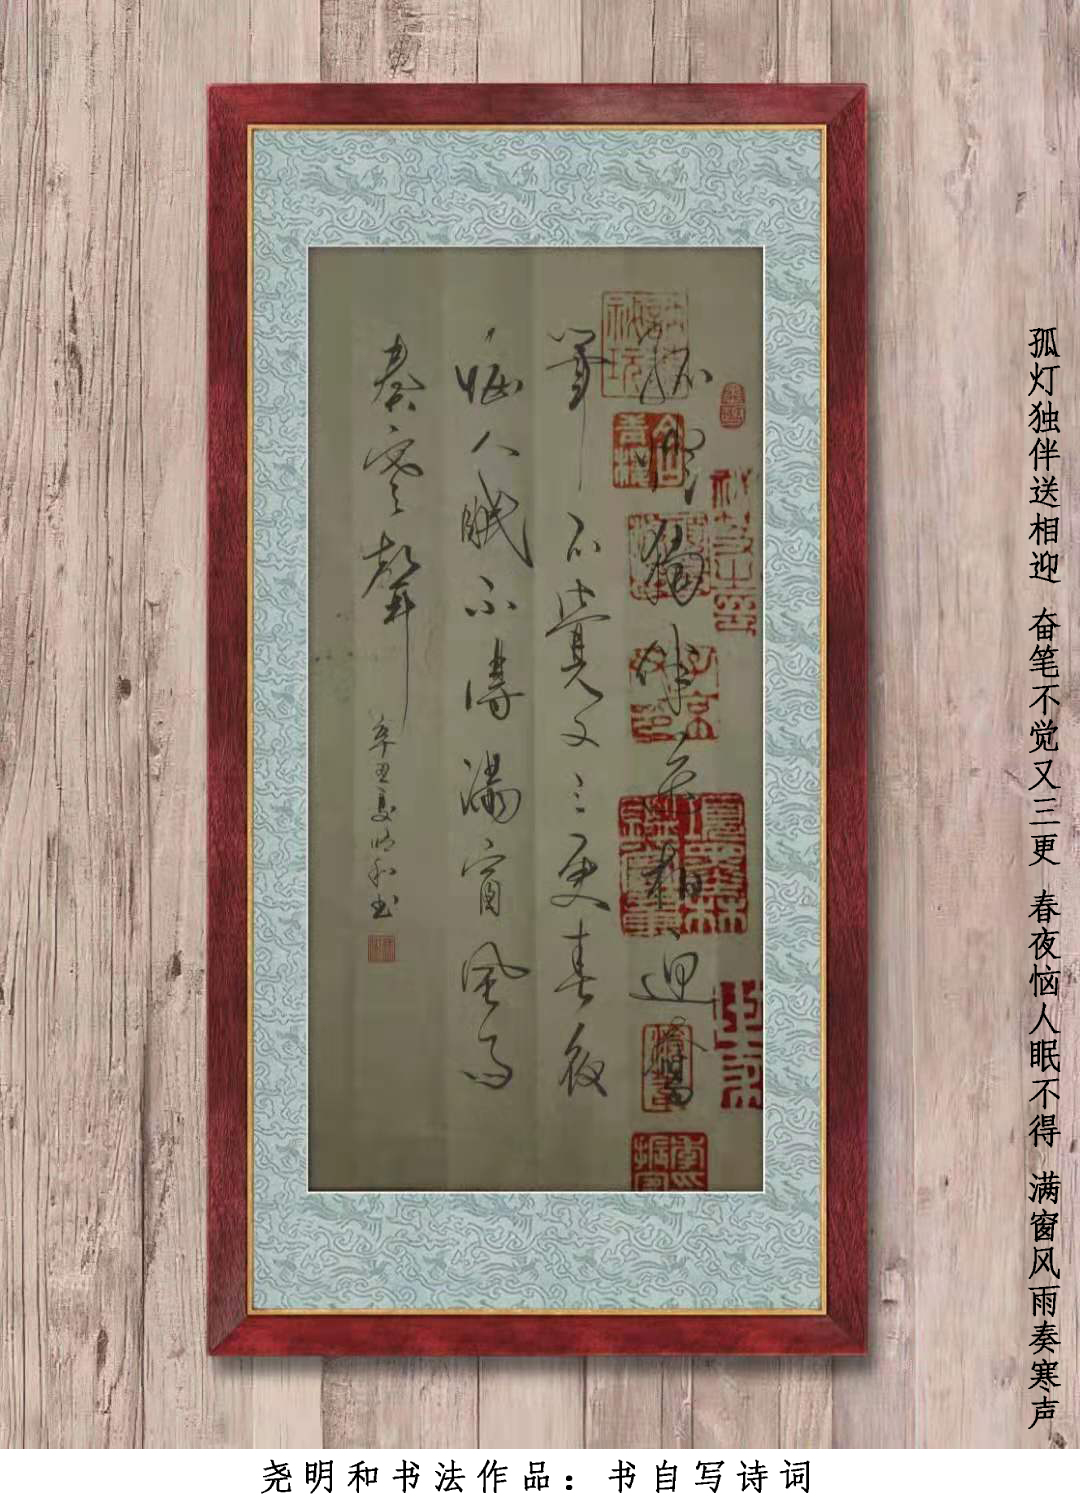 孤灯独伴送相迎 奋笔不觉又三更 春夜恼人眠不得 满窗风雨奏寒声
孤灯獨伴送相迎奮
筆不覺又三更春夜
惱人眠不得滿窗風雨
奏寒聲
辛丑夏明和书
尧明和书法作品：书自写诗词